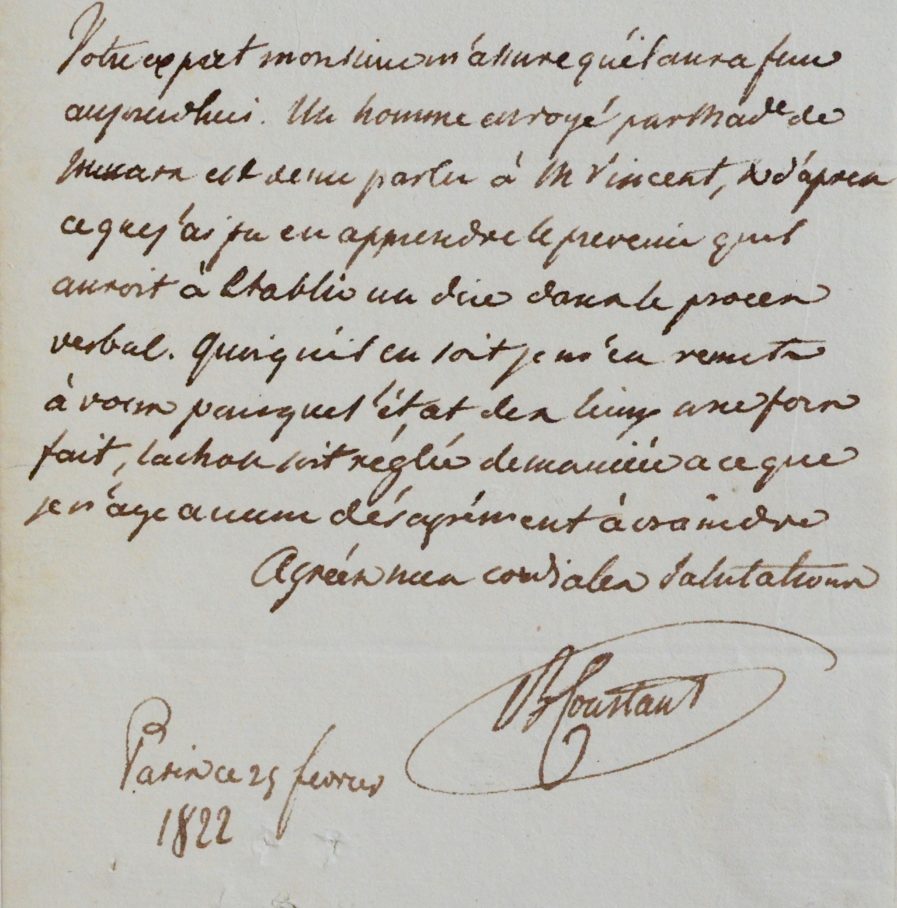 Votre expert monsieur m'assure qu'il aura fini
aujourdhui. Un homme envoyé par Made de
est venu parler à M Vincent, & d'après
ce que j'ai pu en apprendre le prevenir quil
auroit à établir un dire dans le procès
verbal. Quoiqu'il en soit je m'en remets
à vous pourque l'état des lieux une fois
fait, la chose soit réglée de manière a ce que
je n'aye aucun désagrément à craindre
Agréez mes cordiales salutations
B Constant
Paris ce 25 fevrier
1822